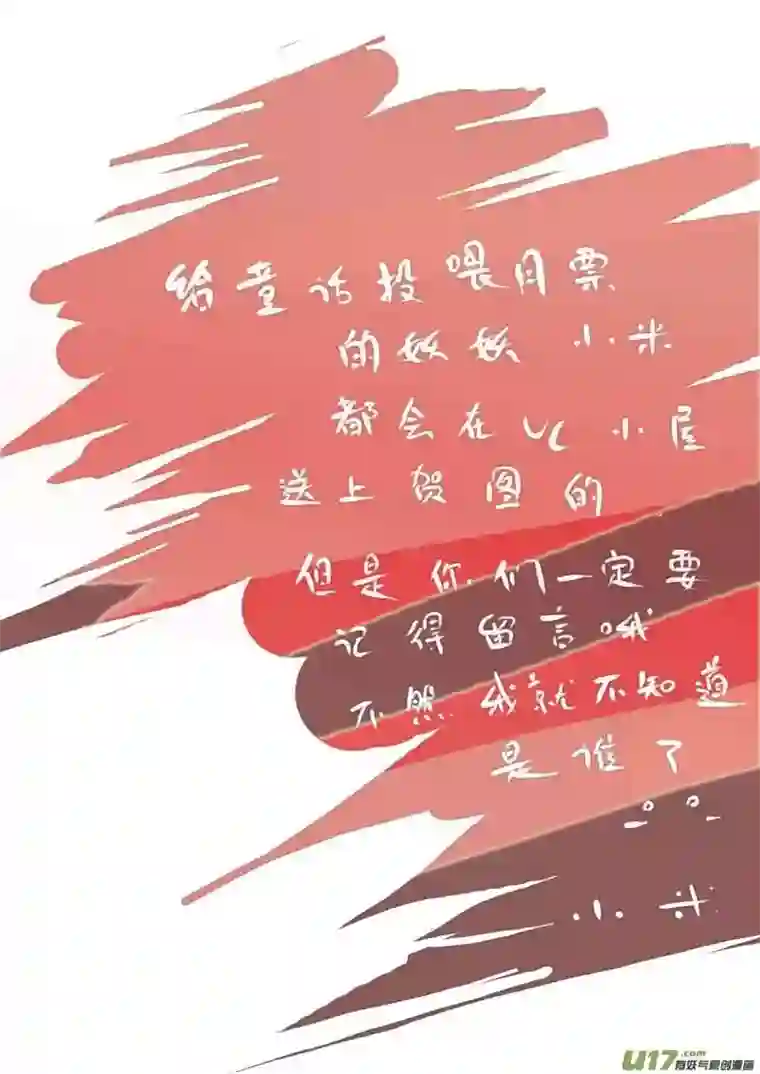 给童话投喂月票
的妖妖 小米
都会在UC小屋
送上贺图的
但是你们一定要
记得留言哦
不然我就不知道
是谁了
小米
U17.com
有妖气原创漫画